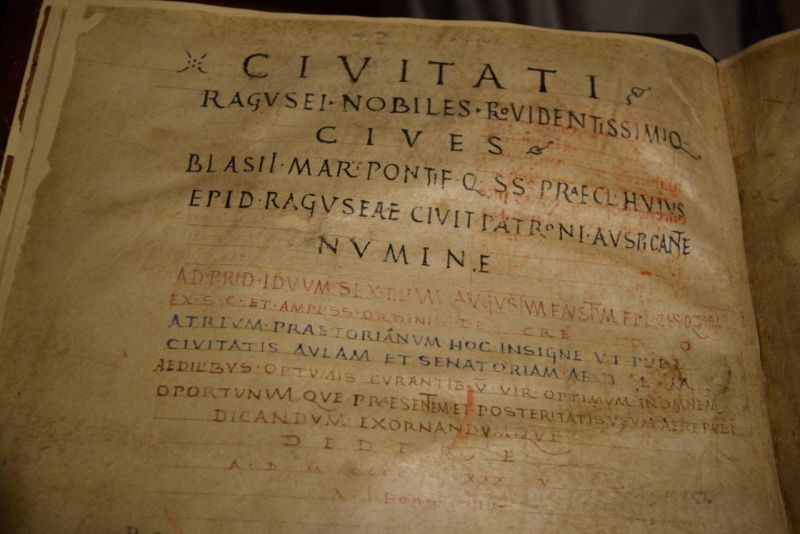 CIVITATI
RAGVSEI · NOBILES · PROVIDENTISSIMIQ
CIVES
BLASII · MAR · PONTIF · Q · SS PRAECL · HVIVS
EPID · RAGVSEAE CIVIT PATRONI · AVSPICANTE
NVMINE
AD · PRID · IDVVM SEXTILIVM AVGVSTVM FAVSTVM
EX · S · C · ET · AMPLISS · ORDINIS · DE CRE O
ATRIVM · PRAETORIANVM HOC INSIGNE VT PUBL
CIVITATIS AVLAM ET SENATORIAM AE D
AEDILIBVS · OPTVMIS CVRANTIB V VIR OPTIMVM IN OMNEM
OPORTVNVM QVE PRAESENTEM ET POSTERITATIS VSVM AERE PVBL
DICANDVM EXORNANDVMQVE
DEDERE
A D M XXX V